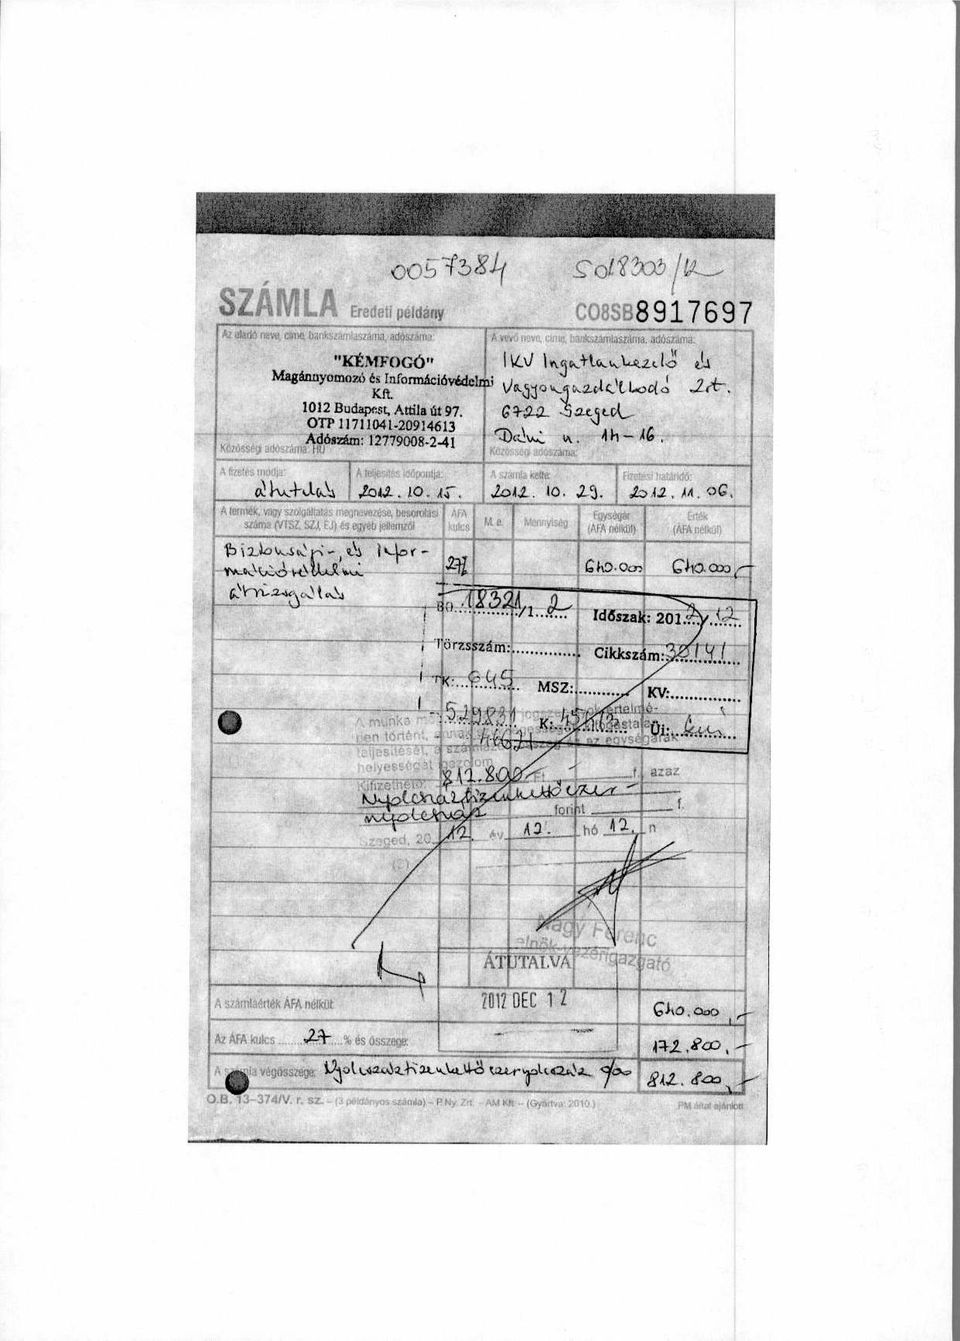 0057384 S018303/12
SZÁMLA Eredeti példány CO8SB8917697
Az eladó neve, címe, bankszámlaszáma, adószáma:
"KÉMFOGÓ"
Magánnyomozó és Információvédelmi
Kft.
1012 Budapest, Attila út 97.
OTP 11711041-20914613
Adószám: 12779008-2-41
Közösségi adószáma: HU
A vevő neve, címe, bankszámlaszáma, adószáma:
IKV Ingatlankezelő és
Vagyongazdálkodó Zrt.
6722 Szeged
Dáni u. 14-16.
Közösségi adószáma:
A fizetés módja: A teljesítés időpontja: A számla kelte: Fizetési határidő:
átutalás 2012. 10. 15. 2012. 10. 29. 2012. 11. 06.
A termék, vagy szolgáltatás megnevezése, besorolási
száma (VTSZ, SZJ, ÉJ) és egyéb jellemzői
ÁFA
kulcs
M. e. Mennyiség
Egységár
(ÁFA nélkül)
Érték
(ÁFA nélkül)
Biztonsági-, és infor-
mációvédelmi
átvizsgálás
27% 640.000 640.000,-
18321/1 2 Időszak: 2012/12
Törzsszám: Cikkszám: 30141
TK: 645 MSZ: KV:
529831 K: Üi:
46621
A munka
pen történt,
teljesítését, a
helyességét igazolom
Kifizethető: 812.800 Ft f, azaz
Nyolcszáztizenkettőezer-
nyolcszáz forint f.
Szeged, 2012 év 12. hó 12. n
Nagy Ferenc
elnök-vezérigazgató
ÁTUTALVA
2012 DEC 12
A számlaérték ÁFA nélkül: 640.000,-
Az ÁFA kulcs 27 % és összege: 172.800,-
A számla végösszege: Nyolcszáztizenkettőezernyolcszáz 0/00 812.800,-
O.B. 13-374/V. r. sz. - (3 példányos számla) - P. Ny. Zrt. - AM Kft - (Gyártva: 2010.) PM által ajánlott